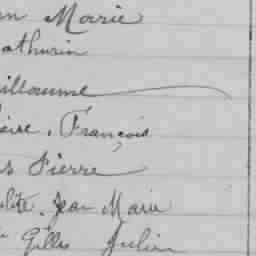 n Marie
athurin
illaume
oise, François
s Pierre
olite, Jean Marie
Gilles Julien